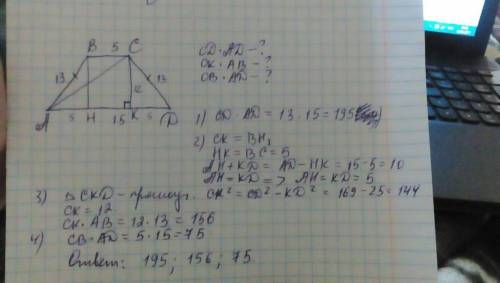 B 5 C
13 13
12
A 5 H 15 K 5 D
CD · AD - ?
CK · AB - ?
CB · AD - ?
1) CD · AD = 13 · 15 = 195
2) CK = BH,
HK = BC = 5
AH + KD = AD - HK = 15 - 5 = 10
AH = KD => AH = KD = 5
3) △ CKD - прямоуг. CK² = CD² - KD² = 169 - 25 = 144
CK = 12
CK · AB = 12 · 13 = 156
4) CB · AD = 5 · 15 = 75
Ответ: 195; 156; 75.